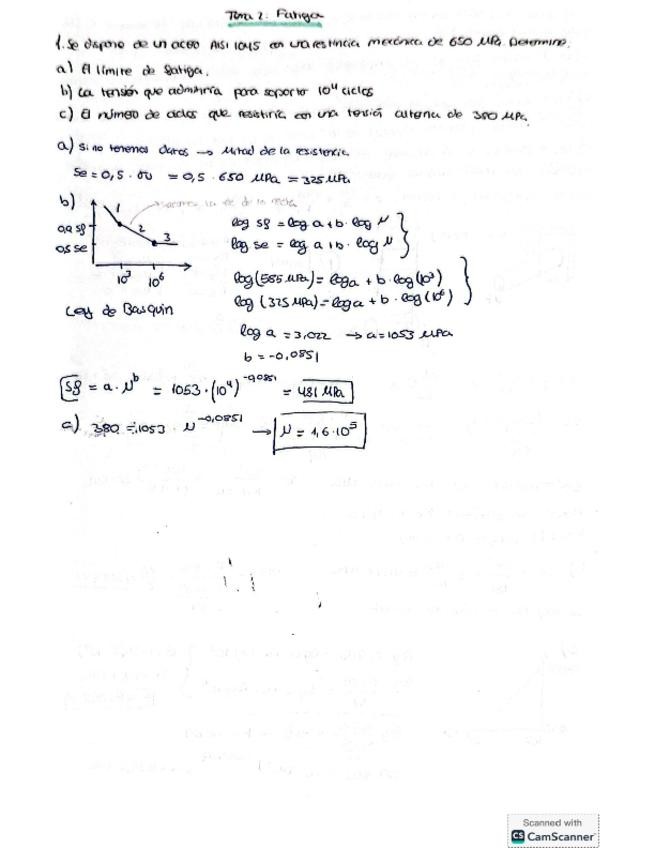 Tema 2: Fatiga
1. Se dispone de un acero AISI 1045 con una resistencia mecánica de 650 MPa. Determine.
a) El límite de fatiga.
b) La tensión que admitiría para soportar 10⁴ ciclos
c) El número de ciclos que resistiría con una tensión alterna de 380 MPa.
a) Si no tenemos datos → Mitad de la resistencia
Se = 0,5 · σu = 0,5 · 650 MPa = 325 MPa
b)
1
2
3
0,9 Sf
0,5 Se
10³ 10⁶
log Sf = log a + b · log N
log Se = log a + b · log N
log (585 MPa) = log a + b · log (10³)
log (325 MPa) = log a + b · log (10⁶)
Ley de Basquin
log a = 3,022 → a = 1053 MPa
b = -0,0851
Sf = a · N^b = 1053 · (10⁴)^-0,0851 = 481 MPa
c) 380 = 1053 · N^-0,0851 → N = 1,6 · 10⁵
Scanned with
CS CamScanner